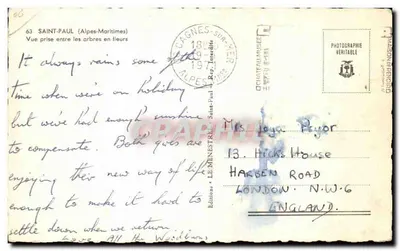 60
63 SAINT-PAUL (Alpes-Maritimes)
Vue prise entre les arbres en fleurs
It always rains some of the
time when we're on holiday
but we've had enough sunshine
to compensate. Both girls are
enjoying their new way of life
enough to make it hard to
settle down when we return.
Love All the
CAGNES-SUR-MER
18
ALPES
Editions LE MENESTREL Saint-Paul
PHOTOGRAPHIE
VERITABLE
Pryor
13. Hicks House
HARBEN ROAD
LONDON. N.W.6
ENGLAND.